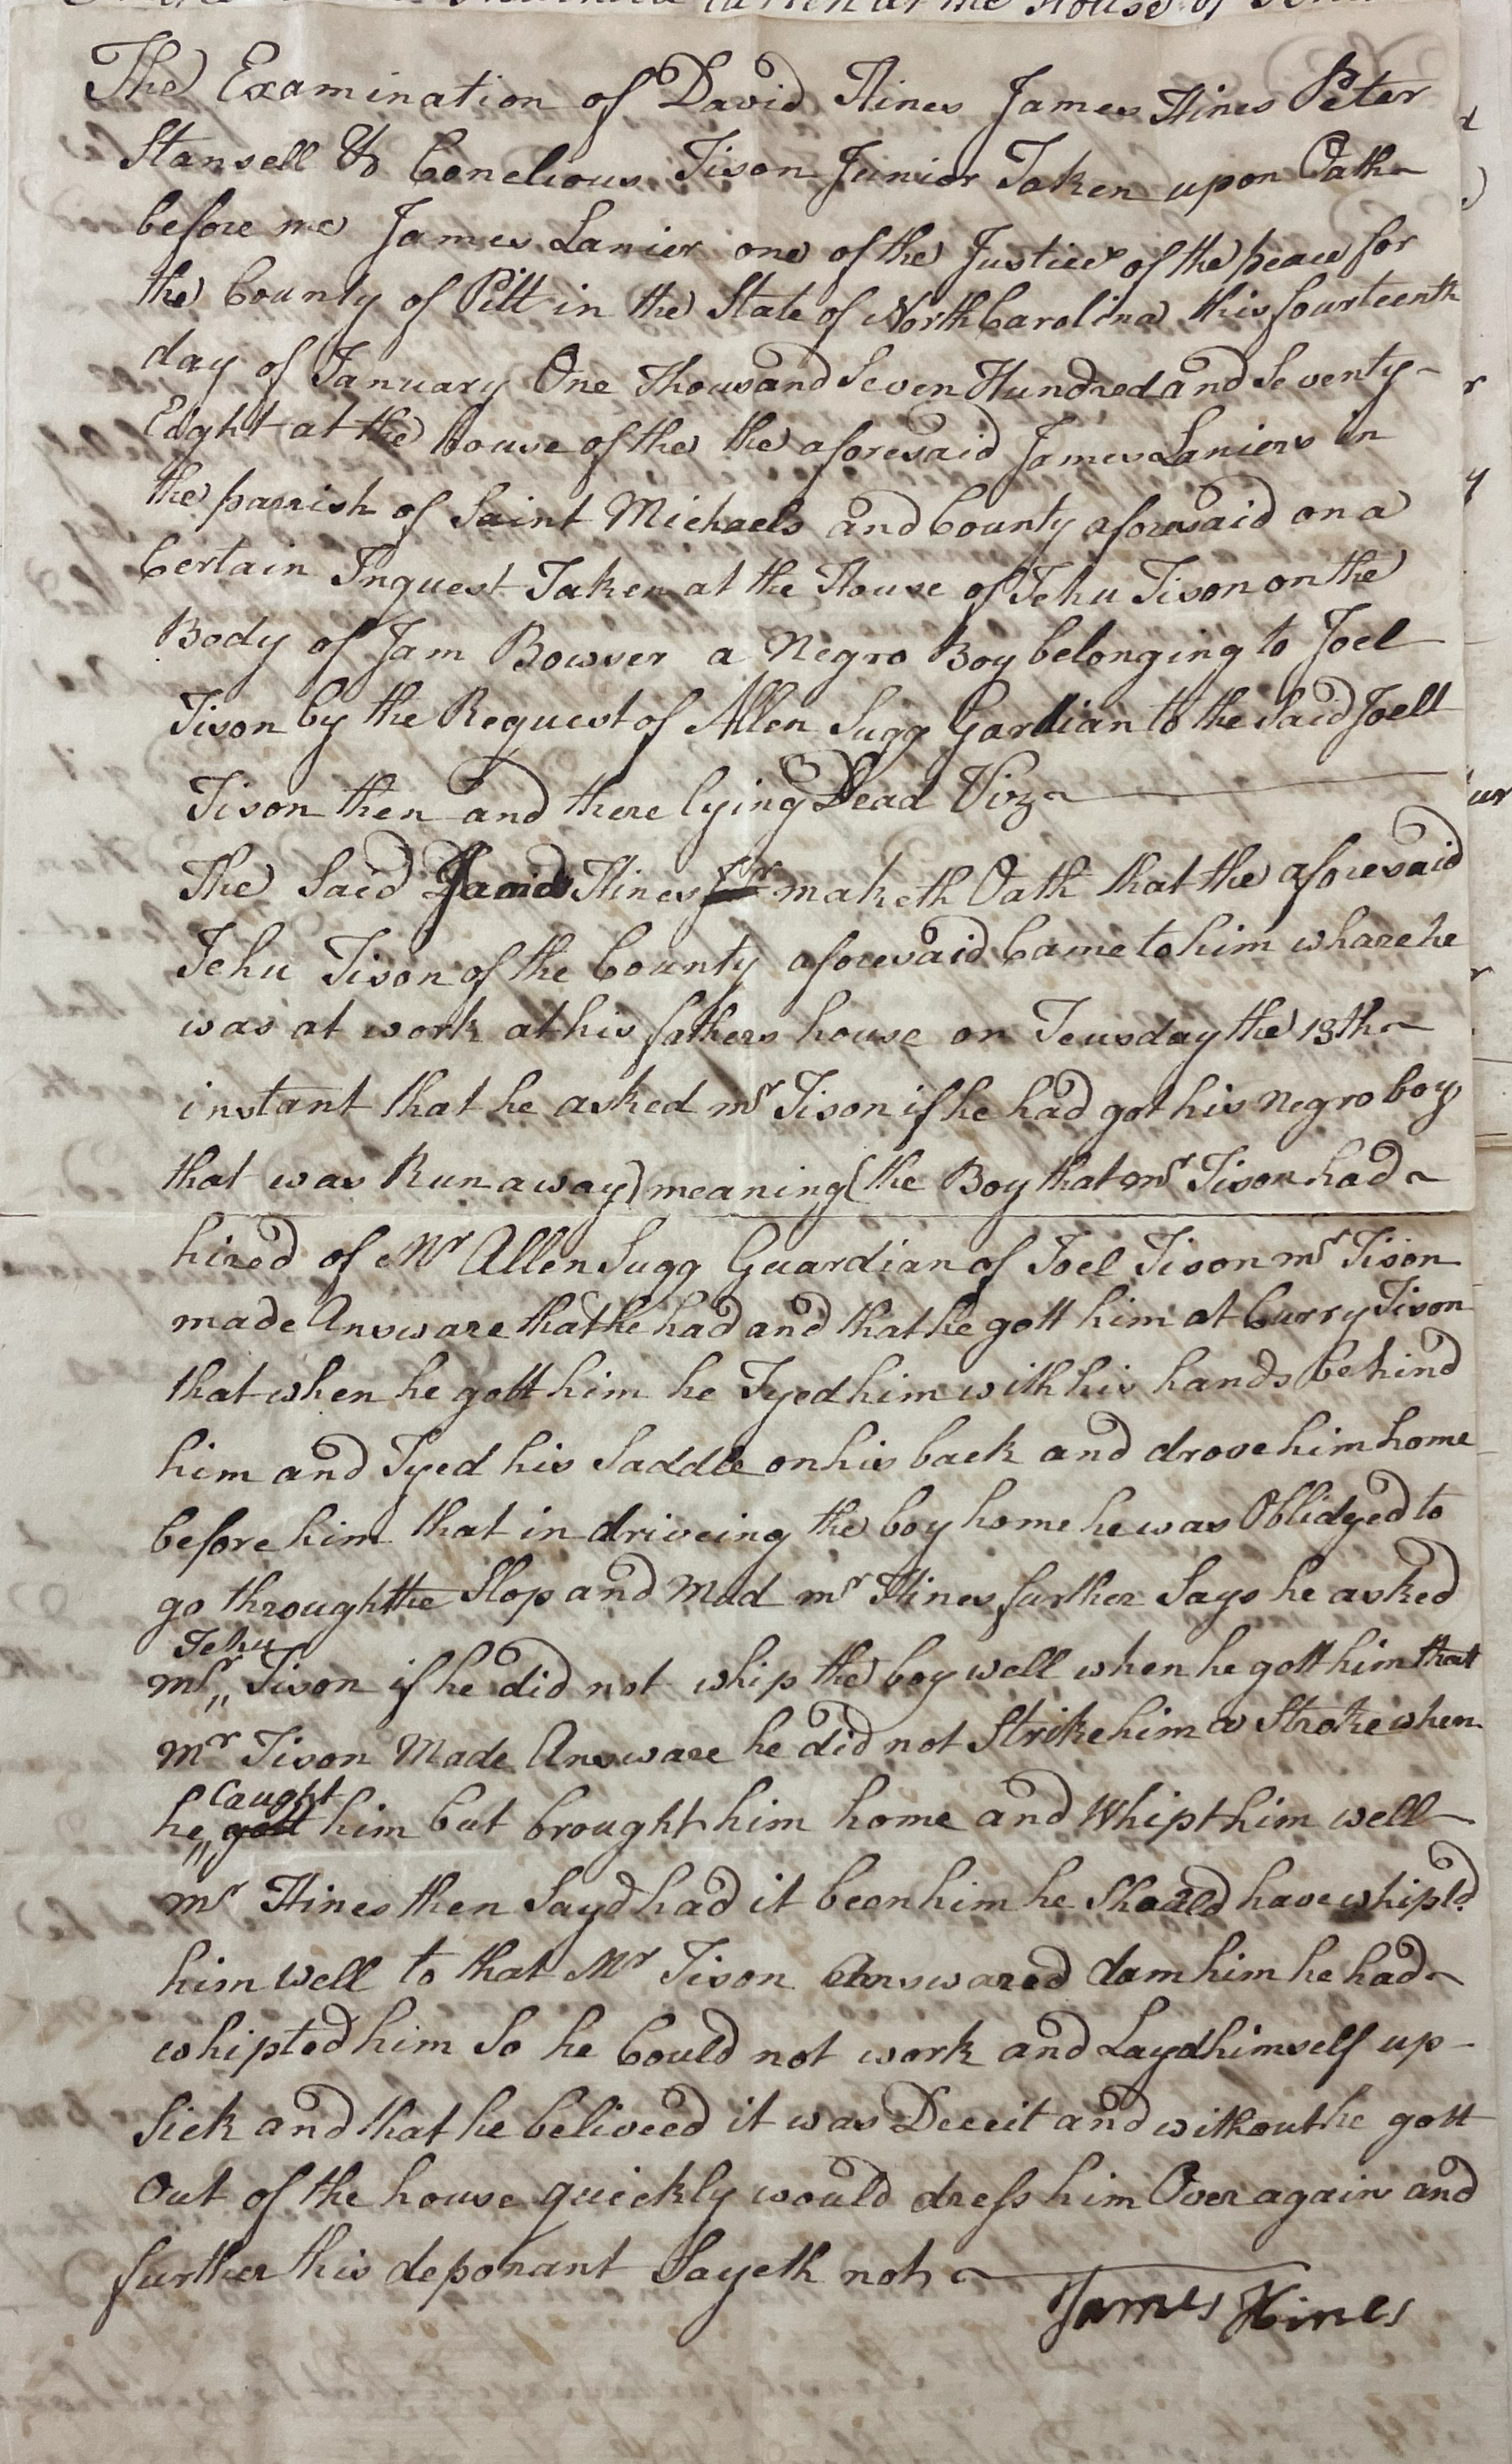 The Examination of David Hines James Hines Peter
Stansell & Conelious Tison Junior Taken upon Oath
before me James Lanier one of the Justices of the peace for
the County of Pitt in the State of North Carolina this fourteenth
day of January One Thousand Seven Hundred and Seventy
Eaght at the house of the the aforesaid James Laniers in
the parrish of Saint Michaels and County aforesaid on a
Certain Inquest Taken at the House of Jehu Tison on the
Body of Jam Bowser a Negro Boy belonging to Joel
Tison by the Request of Allen Sugg Gardian to the Said Joell
Tison then and there lying Dead Viz
The Said James Hines Jr maketh Oath that the aforesaid
Jehu Tison of the County aforesaid Came to him whare he
was at work at his fathers house on Teusday the 13th
instant that he asked mr Tison if he had got his negro boy
that was Run away) meaning (the Boy that mr Tison had
hired of Mr Allen Sugg Guardian of Joel Tison mr Tison
made Answare that he had and that he gott him at Curry Tison
that when he gott him he Tyed him with his hands behind
him and Tyed his Saddle on his back and drove him home
before him that in driveing the boy home he was Oblidged to
go through the Slop and Mud mr Hines further Says he asked
Jehu
mr,, Tison if he did not whip the boy well when he gott him that
Mr Tison Made Answare he did not Strike him a Stroke when
Caught
he,, gott him but brought him home and Whipt him well
mr Hines then Sayd had it been him he Should have whipt'd
him well to that Mr Tison Answared dam him he had
whipted him So he Could not work and Layd himself up
Sick and that he beliveed it was Deceit and without he gott
Out of the house quickly would dress him Over again and
further this deponant Sayeth not
James Hines